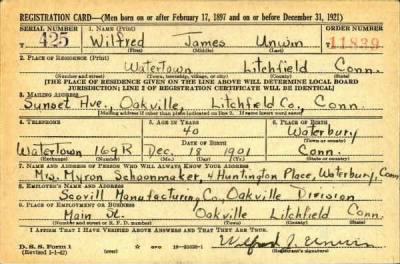 REGISTRATION CARD—(Men born on or after February 17, 1897 and on or before December 31, 1921)
SERIAL NUMBER 1. NAME (Print) ORDER NUMBER
U 425 Wilfred James Unwin 11839
(First) (Middle) (Last)
2. PLACE OF RESIDENCE (Print)
Watertown Litchfield Conn.
(Number and street) (Town, township, village, or city) (County) (State)
[THE PLACE OF RESIDENCE GIVEN ON THE LINE ABOVE WILL DETERMINE LOCAL BOARD
JURISDICTION; LINE 2 OF REGISTRATION CERTIFICATE WILL BE IDENTICAL]
3. MAILING ADDRESS
Sunset Ave., Oakville, Litchfield Co., Conn.
[Mailing address if other than place indicated on line 2. If same insert word same]
4. TELEPHONE 5. AGE IN YEARS 6. PLACE OF BIRTH
40 Waterbury
DATE OF BIRTH (Town or county)
Watertown 169R Dec. 18 1901 Conn.
(Exchange) (Number) (Mo.) (Day) (Yr.) (State or country)
7. NAME AND ADDRESS OF PERSON WHO WILL ALWAYS KNOW YOUR ADDRESS
Mrs. Myron Schoonmaker, 4 Huntington Place, Waterbury, Conn
8. EMPLOYER'S NAME AND ADDRESS
Scovill Manufacturing Co., Oakville Division
9. PLACE OF EMPLOYMENT OR BUSINESS
Main St. Oakville Litchfield Conn.
(Number and street or R. F. D. number) (Town) (County) (State)
I AFFIRM THAT I HAVE VERIFIED ABOVE ANSWERS AND THAT THEY ARE TRUE.
D. S. S. Form 1
(Revised 1-1-42) Wilfred J. Unwin
(Registrant's signature)